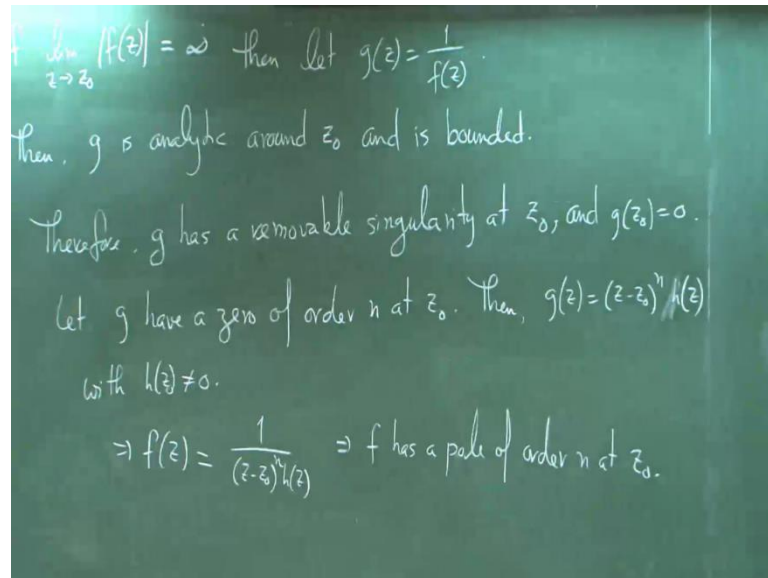 f lim |f(z)| = ∞ then let g(z) = 1/f(z).
z→z₀
Then, g is analytic around z₀ and is bounded.
Therefore, g has a removable singularity at z₀, and g(z₀)=0.
Let g have a zero of order n at z₀. Then, g(z) = (z-z₀)ⁿ h(z)
with h(z₀) ≠ 0.
⇒ f(z) = 1/((z-z₀)ⁿ h(z)) ⇒ f has a pole of order n at z₀.